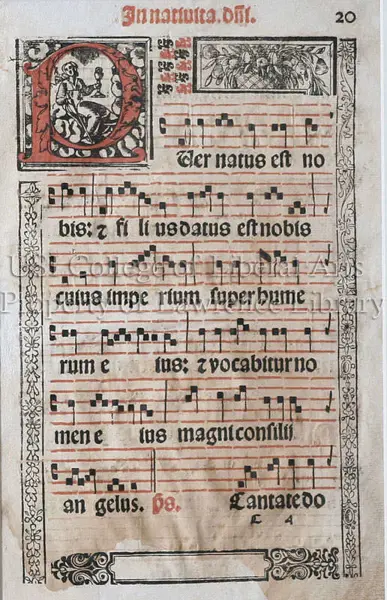 In nativita. dñi.
20
PUer natus est no
bis: ⁊ fi li us datus est nobis
cuius impe rium super hume
rum e ius: ⁊ vocabitur no
men e ius magni consilii
an gelus. Ps. Cantate do
C A
US College of Liberal Arts
Property of Lawrence Library